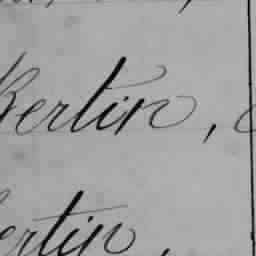 Bertin,
ertin,